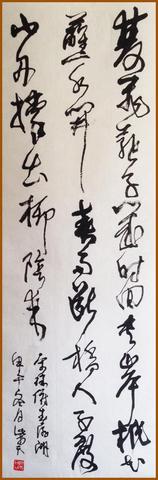 雙飛燕子幾时回夹岸桃花
蘸水開春雨斷橋人不度
小舟撑出柳陰来
宋徐俯春游湖
甲午冬月